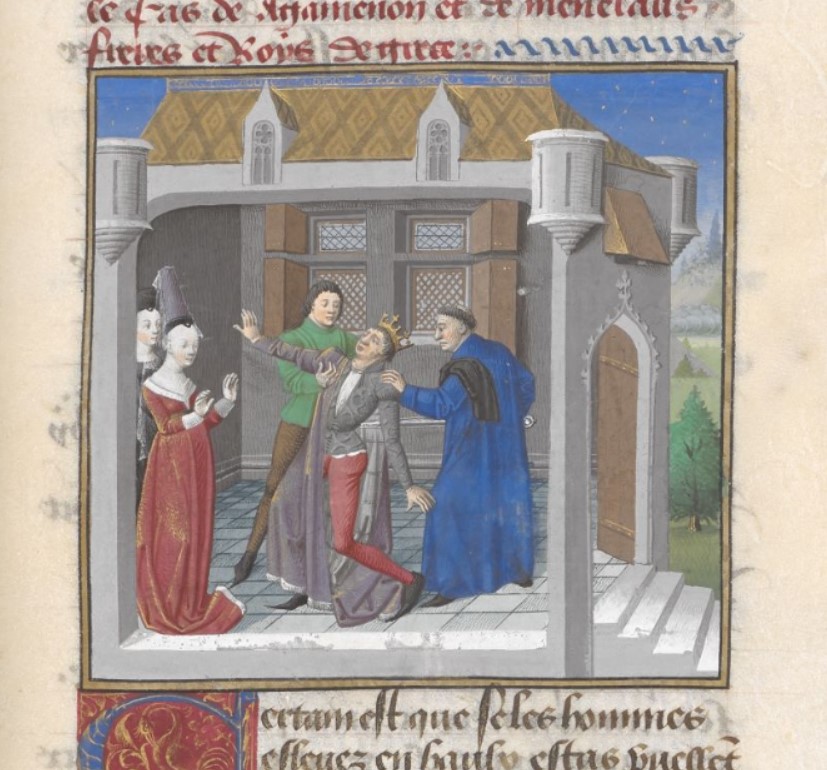 le cas de Agamenon et de menelaus
freres et Roys de grece
Certain est que se les hommes
esleuez en haulx estas pueent